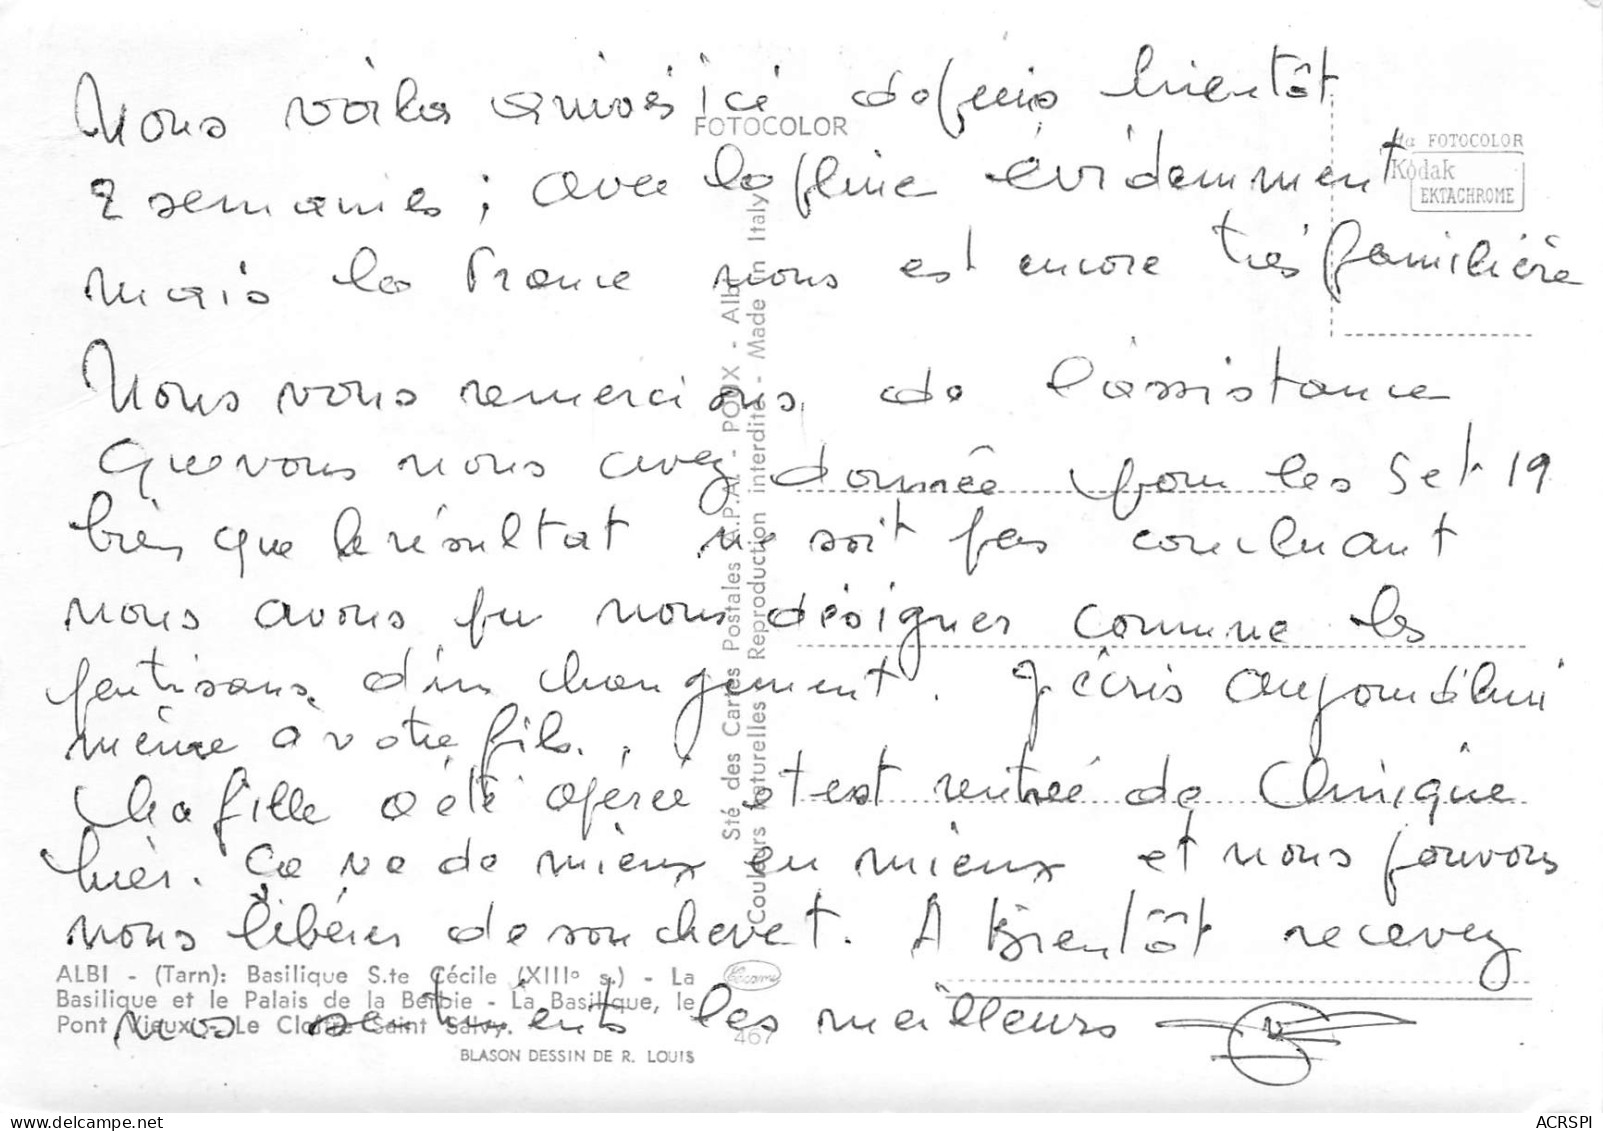 Nous voila arrivés ici depuis bientôt
FOTOCOLOR
2 semaines ; avec la pluie évidemment
mais la France nous est encore très familière
Nous vous remercions de l'assistance
que vous nous avez donnée pour les 5 et 19
bien que le résultat ne soit pas concluant
nous avons pu nous désigner comme les
partisans d'un changement. J'écris aujourd'hui
même à votre fils.
Ma fille a été opérée et est rentrée de Clinique
hier. Ca va de mieux en mieux et nous pouvons
nous libérer de son chevet. A Bientôt recevez
nos sentiments les meilleurs
FOTOCOLOR
Kodak
EKTACHROME
Sté des Cartes Postales A.P.A. - POUX - Albi
Couleurs Naturelles Reproduction interdite - Made in Italy
ALBI - (Tarn): Basilique S.te Cécile (XIII° s.) - La
Basilique et le Palais de la Berbie - La Basilique, le
Pont Vieux - Le Cloître Saint Salvy.
BLASON DESSIN DE R. LOUIS
467
ACRSPI